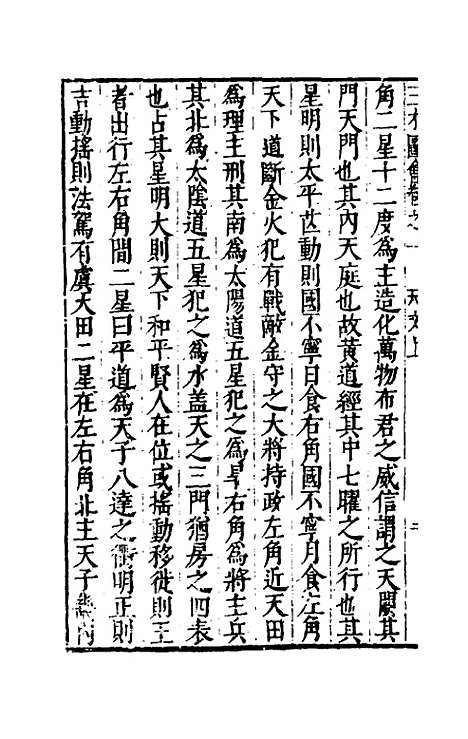 三才圖會卷之一 天文上 二
角二星十二度為主造化萬物布君之威信謂之天闕其
門天門也其內天庭也故黃道經其中七曜之所行也其
星明則太平芒動則國不寧日食右角國不寧月食左角
天下道斷金火犯有戰敵金守之大將持政左角近天田
為理主刑其南為太陽道五星犯之為旱右角為將主兵
其北為太陰道五星犯之為水盖天之三門猶房之四表
也占其星明大則天下和平賢人在位或搖動移徙則王
者出行左右角間二星曰平道為天子八達之衢明正則
吉動搖則法駕有虞天田二星在左右角北主天子畿內